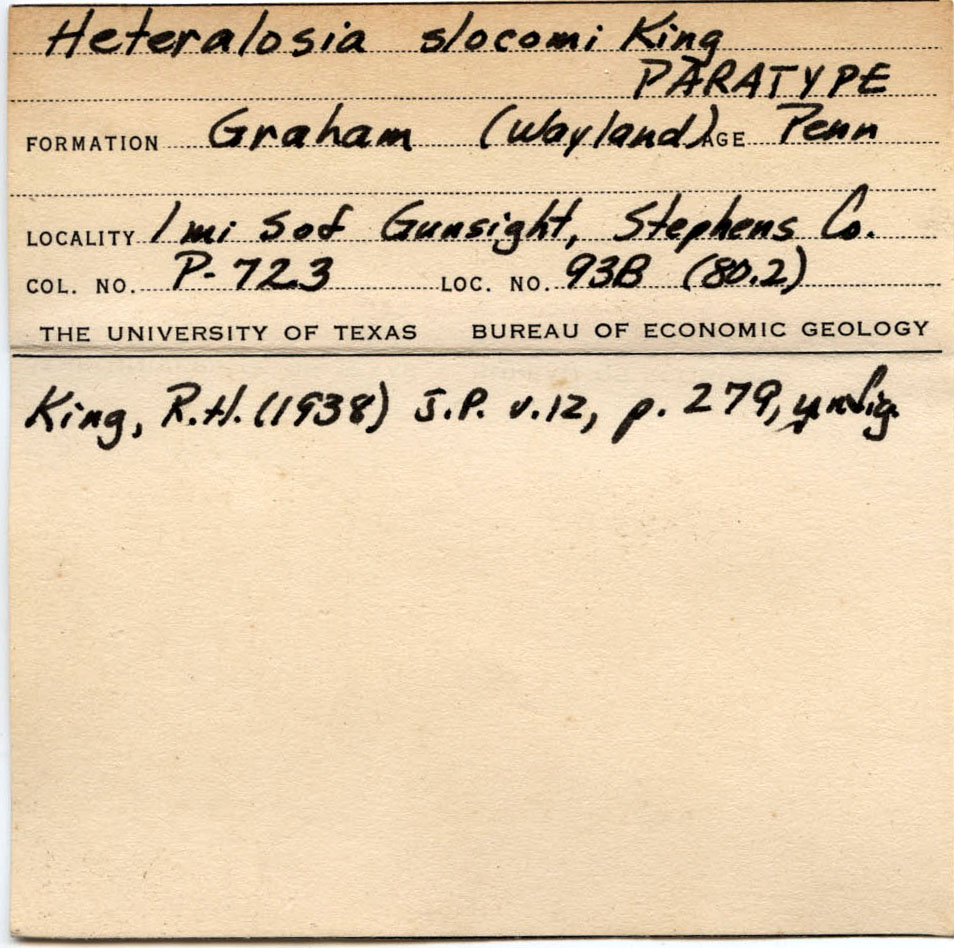 Heteralosia slocomi King
PARATYPE
FORMATION Graham (Wayland) AGE Penn
LOCALITY 1 mi S of Gunsight, Stephens Co.
COL. NO. P-723 LOC. NO. 93B (80.2)
THE UNIVERSITY OF TEXAS BUREAU OF ECONOMIC GEOLOGY
King, R.H. (1938) J.P. v.12, p. 279, unfig.